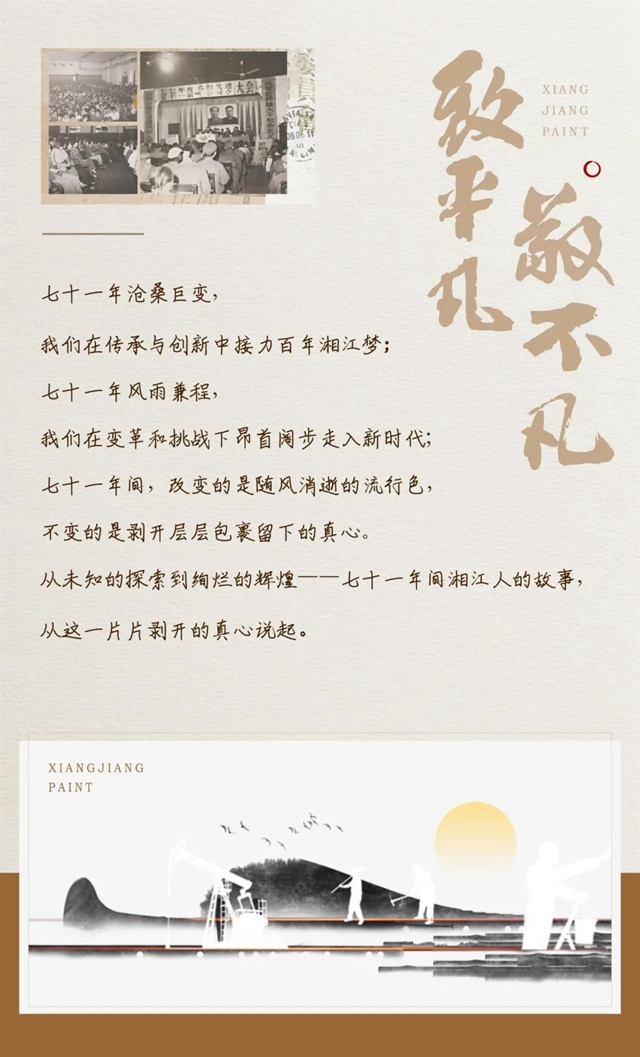 致平凡
敬不凡
XIANG
JIANG
PAINT
大会
七十一年沧桑巨变，
我们在传承与创新中接力百年湘江梦；
七十一年风雨兼程，
我们在变革和挑战下昂首阔步走入新时代；
七十一年间，改变的是随风消逝的流行色，
不变的是剥开层层包裹留下的真心。
从未知的探索到绚烂的辉煌——七十一年间湘江人的故事，
从这一片片剥开的真心说起。
XIANGJIANG
PAINT